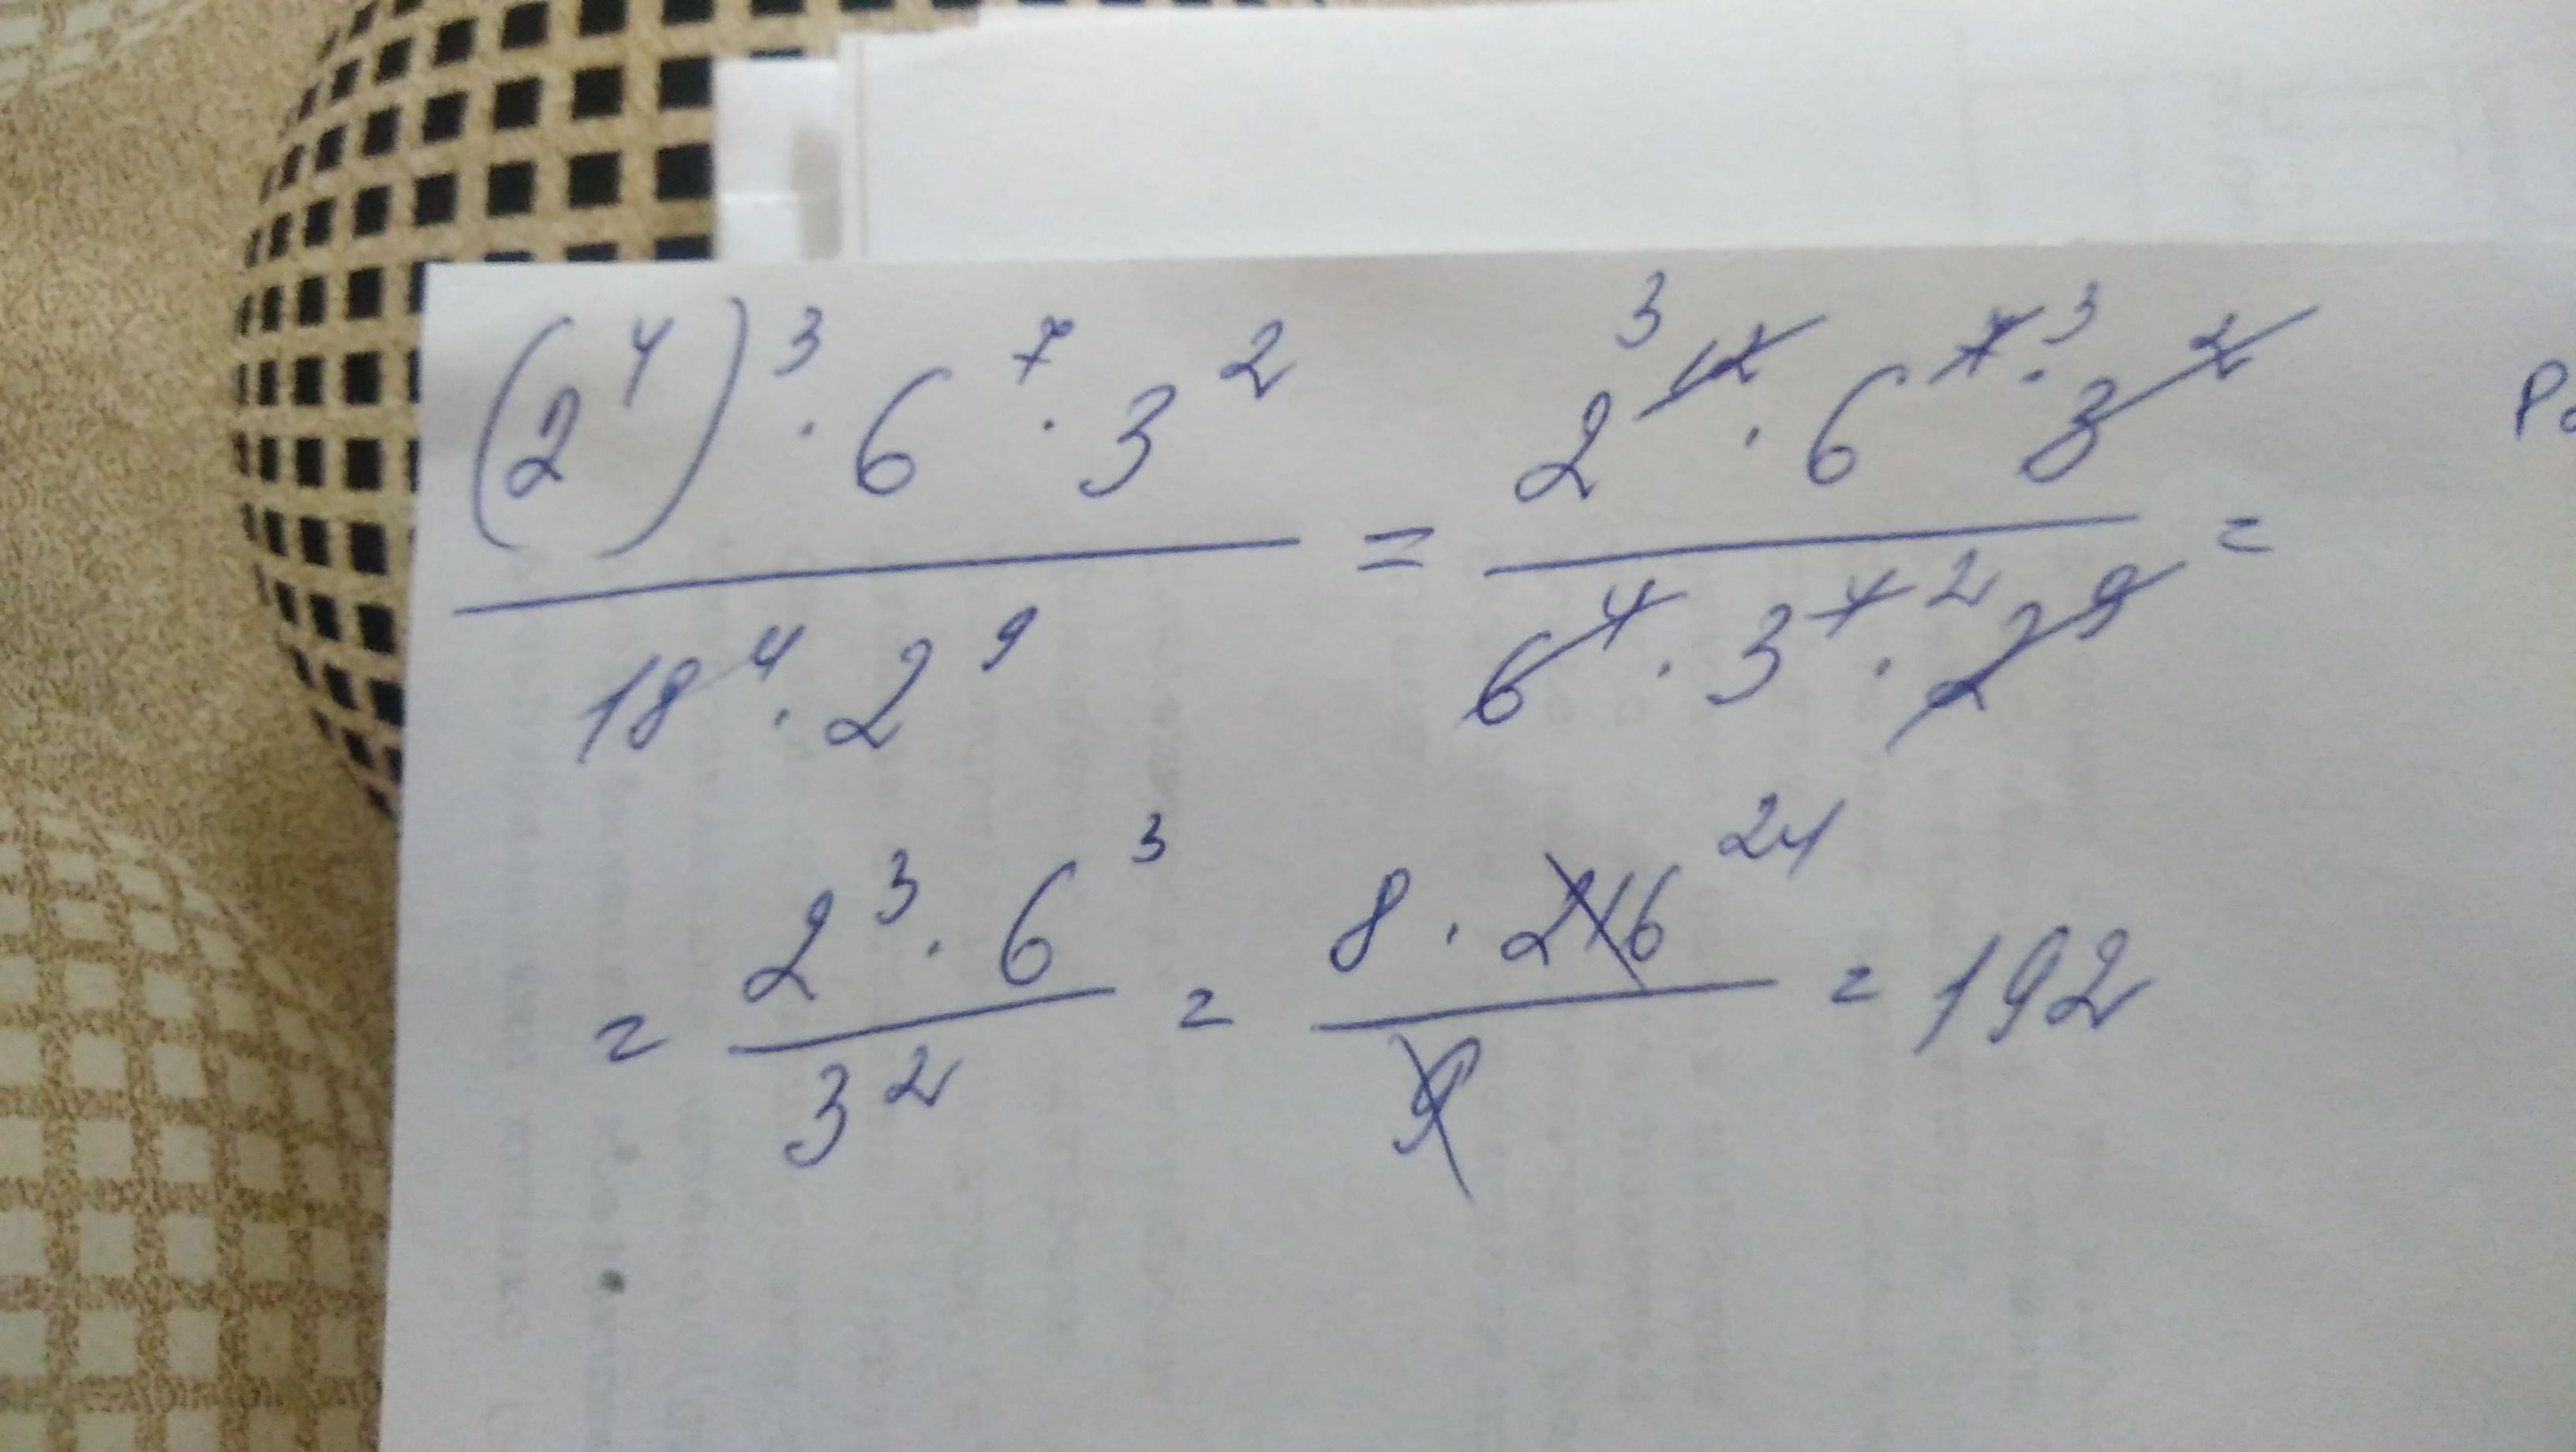 (2⁴)³ · 6⁷ · 3² / 18⁴ · 2⁹ = 2¹² ³ · 6⁷ ³ · 3² / 6⁴ · 3⁴ ² · 2⁹ =
= 2³ · 6³ / 3² = 8 · 216 24 / 9 = 192